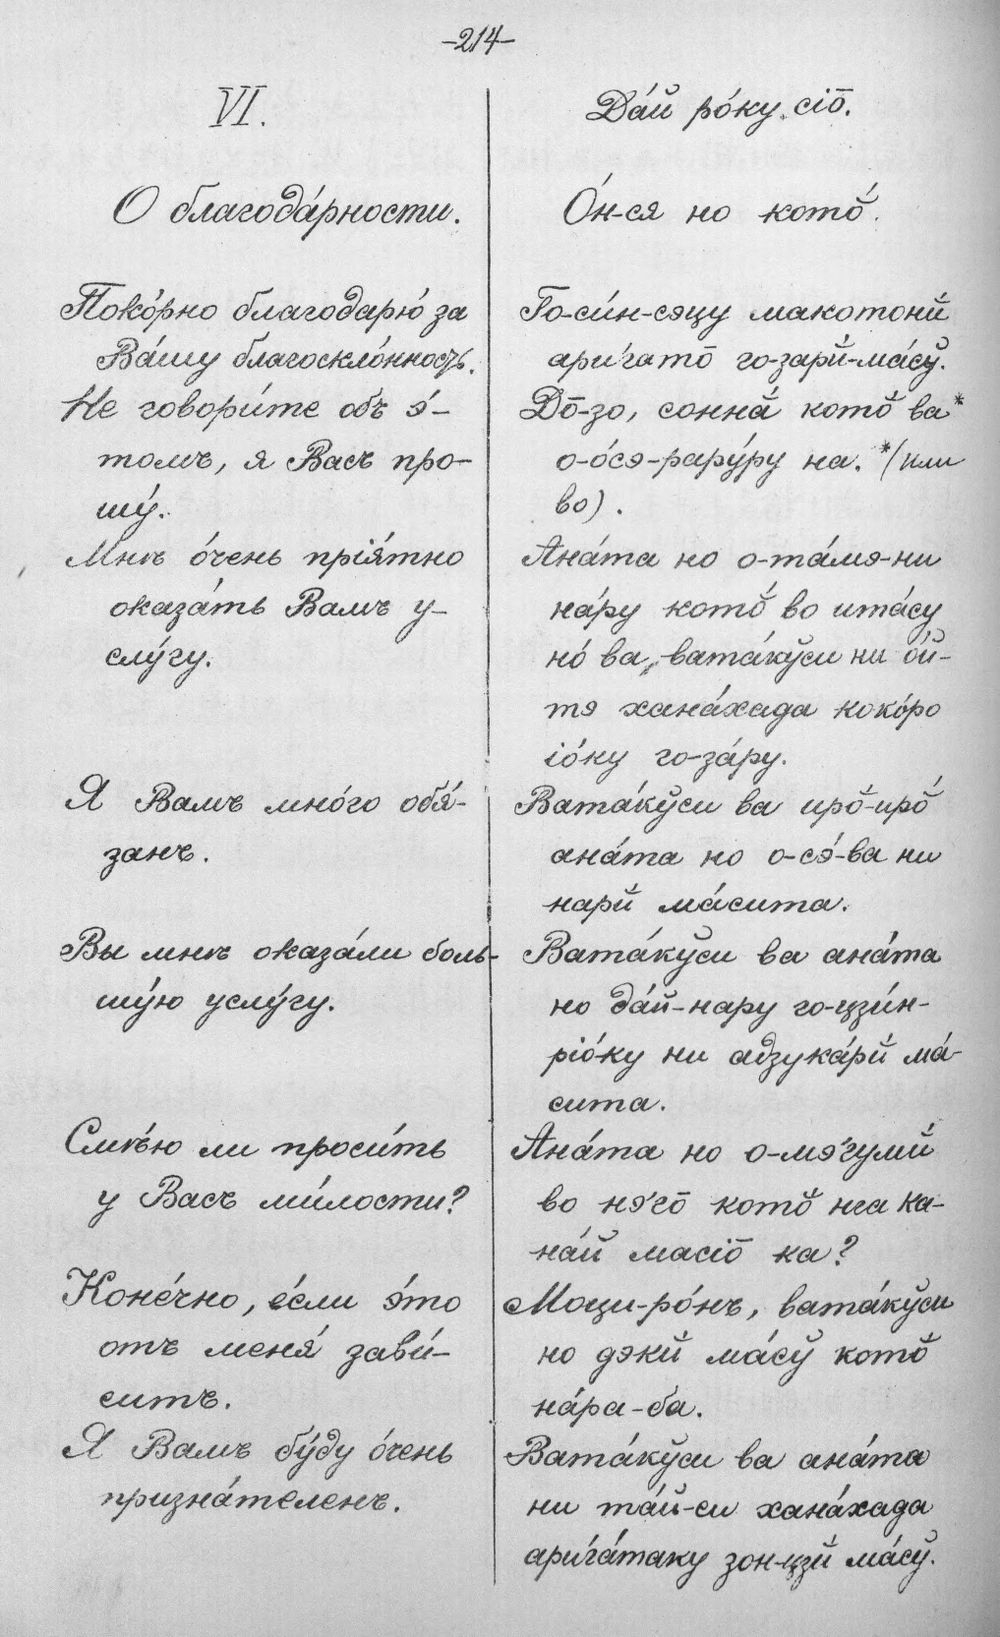 -214-
VI.
О благода́рности.
Поко́рно благодарю́ за
Ва́шу благоскло́нность.
Не говори́те объ э́-
томъ, я Васъ про-
шу́.
Мнѣ о́чень прія́тно
оказа́ть Вамъ у-
слу́гу.
Я Вамъ мно́го обя́-
занъ.
Вы мнѣ оказа́ли боль-
шу́ю услу́гу.
Смѣ́ю ли проси́ть
у Васъ ми́лости?
Коне́чно, е́сли э́то
отъ меня́ зави́-
ситъ.
Я Вамъ бу́ду о́чень
призна́теленъ.
Да́й ро́ку сіо̄.
О́н-ся но кото̆́.
Го-си́н-сэцу макотонй
ари́гато̄ го-зарй-ма́сў.
До̄-зо, соннӑ́ кото̆ ва*
о-о́сэ-рару́ру на. *(или
во).
Ана́та но о-та́мэ-ни
на́ру кото̆́ во ита́су
но́ ва, вата́кўси ни о́й-
тэ хана́хада коко́ро
іо́ку го-за́ру.
Вата́кўси ва иро̆-иро̆́
ана́та но о-сэ́-ва ни
нарй ма́сита.
Вата́кўси ва ана́та
но да́й-нару го-цзи́н-
ріо́ку ни адзука́рй ма́-
сита.
Ана́та но о-мэ́гумй
во нэ́го̄ кото̆ нга ка-
на́й масіо̄ ка?
Моци-ро́нъ, вата́кўси
но дэкй ма́сў кото̆
на́ра-ба.
Вата́кўси ва ана́та
ни та́й-си хана́хада
арига́таку зон-цзй ма́сў.